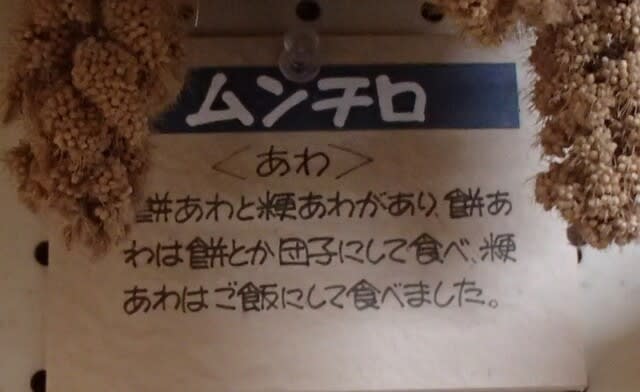 ムンチロ
<あわ>
餅あわと粳あわがあり、餅あ
わは餅とか団子にして食べ、粳
あわはご飯にして食べました。